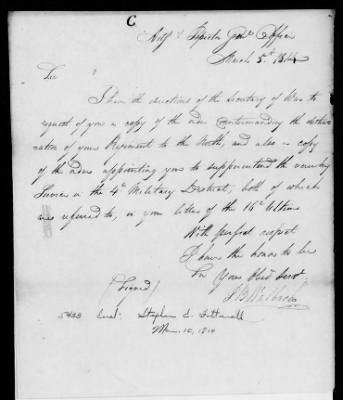 C
Adjt & Inspector Genls Office
March 5th 1814
Sir
I have the directions of the Secretary of War to
request of you a copy of the order countermanding the destination
of your Regiment to the North, and also a copy
of the order appointing you to superintend the recruiting
Service in the 4th Military District, both of which
was referred to, in your letter of the 16th Ultimo
With perfect respect
I have the honor to be
Sir Your Obed Servt
(Signed)
Lieut: Stephen
Mar. 10, 1814